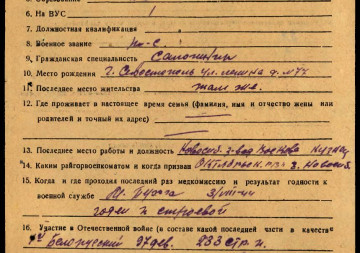 6. На ВУС 1
7. Должностная квалификация
8. Военное звание кр-ц.
9. Гражданская специальность Сапожник
10. Место рождения г. Севастополь ул. Ленина д. №77
11. Последнее место жительства там же.
12. Где проживает в настоящее время семья (фамилия, имя и отчество жены или
родителей и точный их адрес)
13. Последнее место работы и должность Новосиб. з-вод
14. Каким райгорвоенкоматом и когда призван Октябрьск. г. Новосиб.
15. Когда и где проходил последний раз медкомиссию и результат годности к
военной службе 3/VIII-44
годен к строевой
16. Участие в Отечественной войне (в составе какой последней части в качестве
Белорусский 97 див. 233 стр. п.